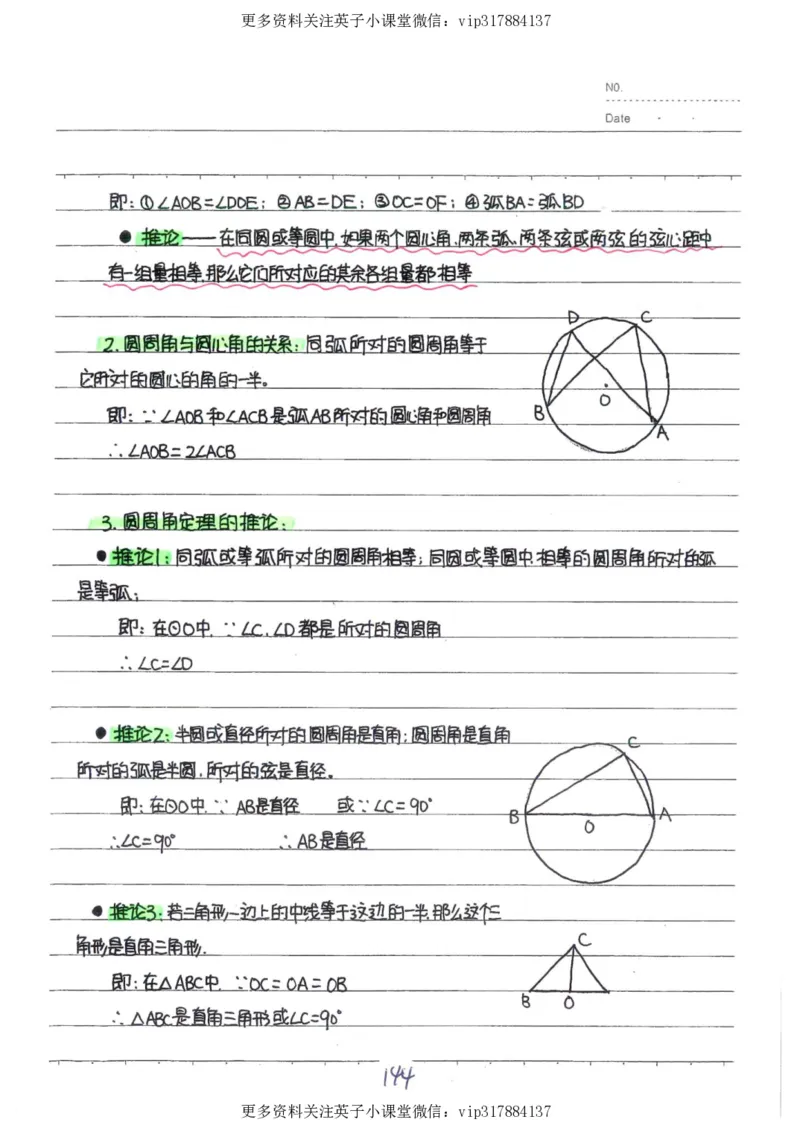 更多资料关注英子小课堂微信：vip317884137
NO.
Date · ·
即：①∠AOB=∠DOE；②AB=DE；③OC=OF；④弧BA=弧BD
● 推论——在同圆或等圆中,如果两个圆心角、两条弧、两条弦或两弦的弦心距中
有一组量相等,那么它们所对应的其余各组量都相等
2.圆周角与圆心角的关系：同弧所对的圆周角等于
它所对的圆心的角的一半。
即：∵∠AOB和∠ACB是弧AB所对的圆心角和圆周角
∴∠AOB=2∠ACB
D C
O
B
A
3.圆周角定理的推论：
● 推论1：同弧或等弧所对的圆周角相等；同圆或等圆中,相等的圆周角所对的弧
是等弧；
即：在⊙O中,∵∠C,∠D都是所对的圆周角
∴∠C=∠D
● 推论2：半圆或直径所对的圆周角是直角；圆周角是直角
所对的弧是半圆,所对的弦是直径。
即：在⊙O中,∵AB是直径 或∵∠C=90°
∴∠C=90° ∴AB是直径
C
B O A
● 推论3：若三角形一边上的中线等于这边的一半,那么这个三
角形是直角三角形.
即：在△ABC中,∵OC=OA=OB
∴△ABC是直角三角形或∠C=90°
C
B O
144
更多资料关注英子小课堂微信：vip317884137